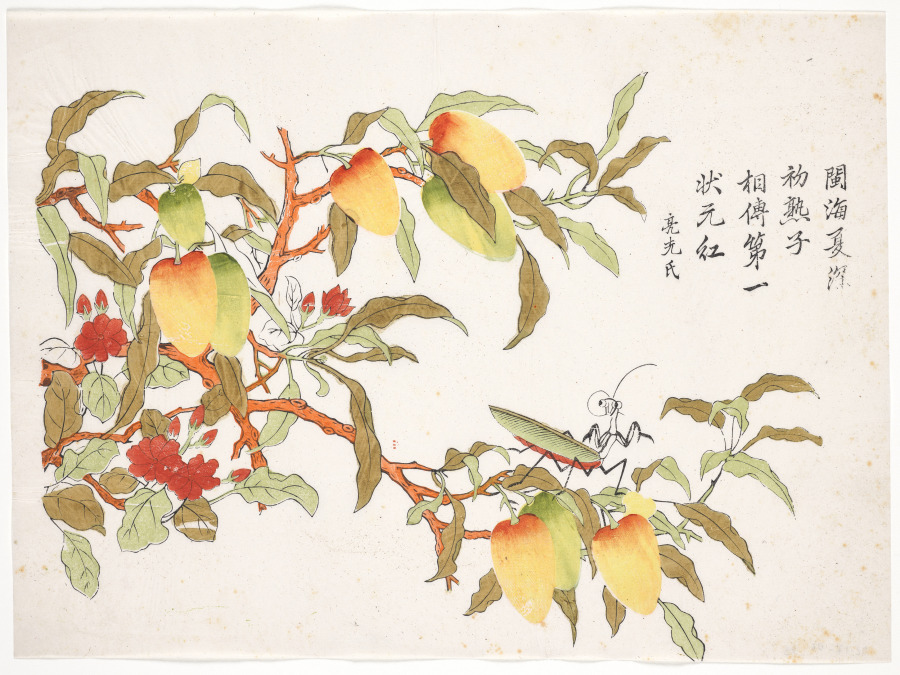 閩海夏深
初熟子
相傳第一
状元紅
亮光氏